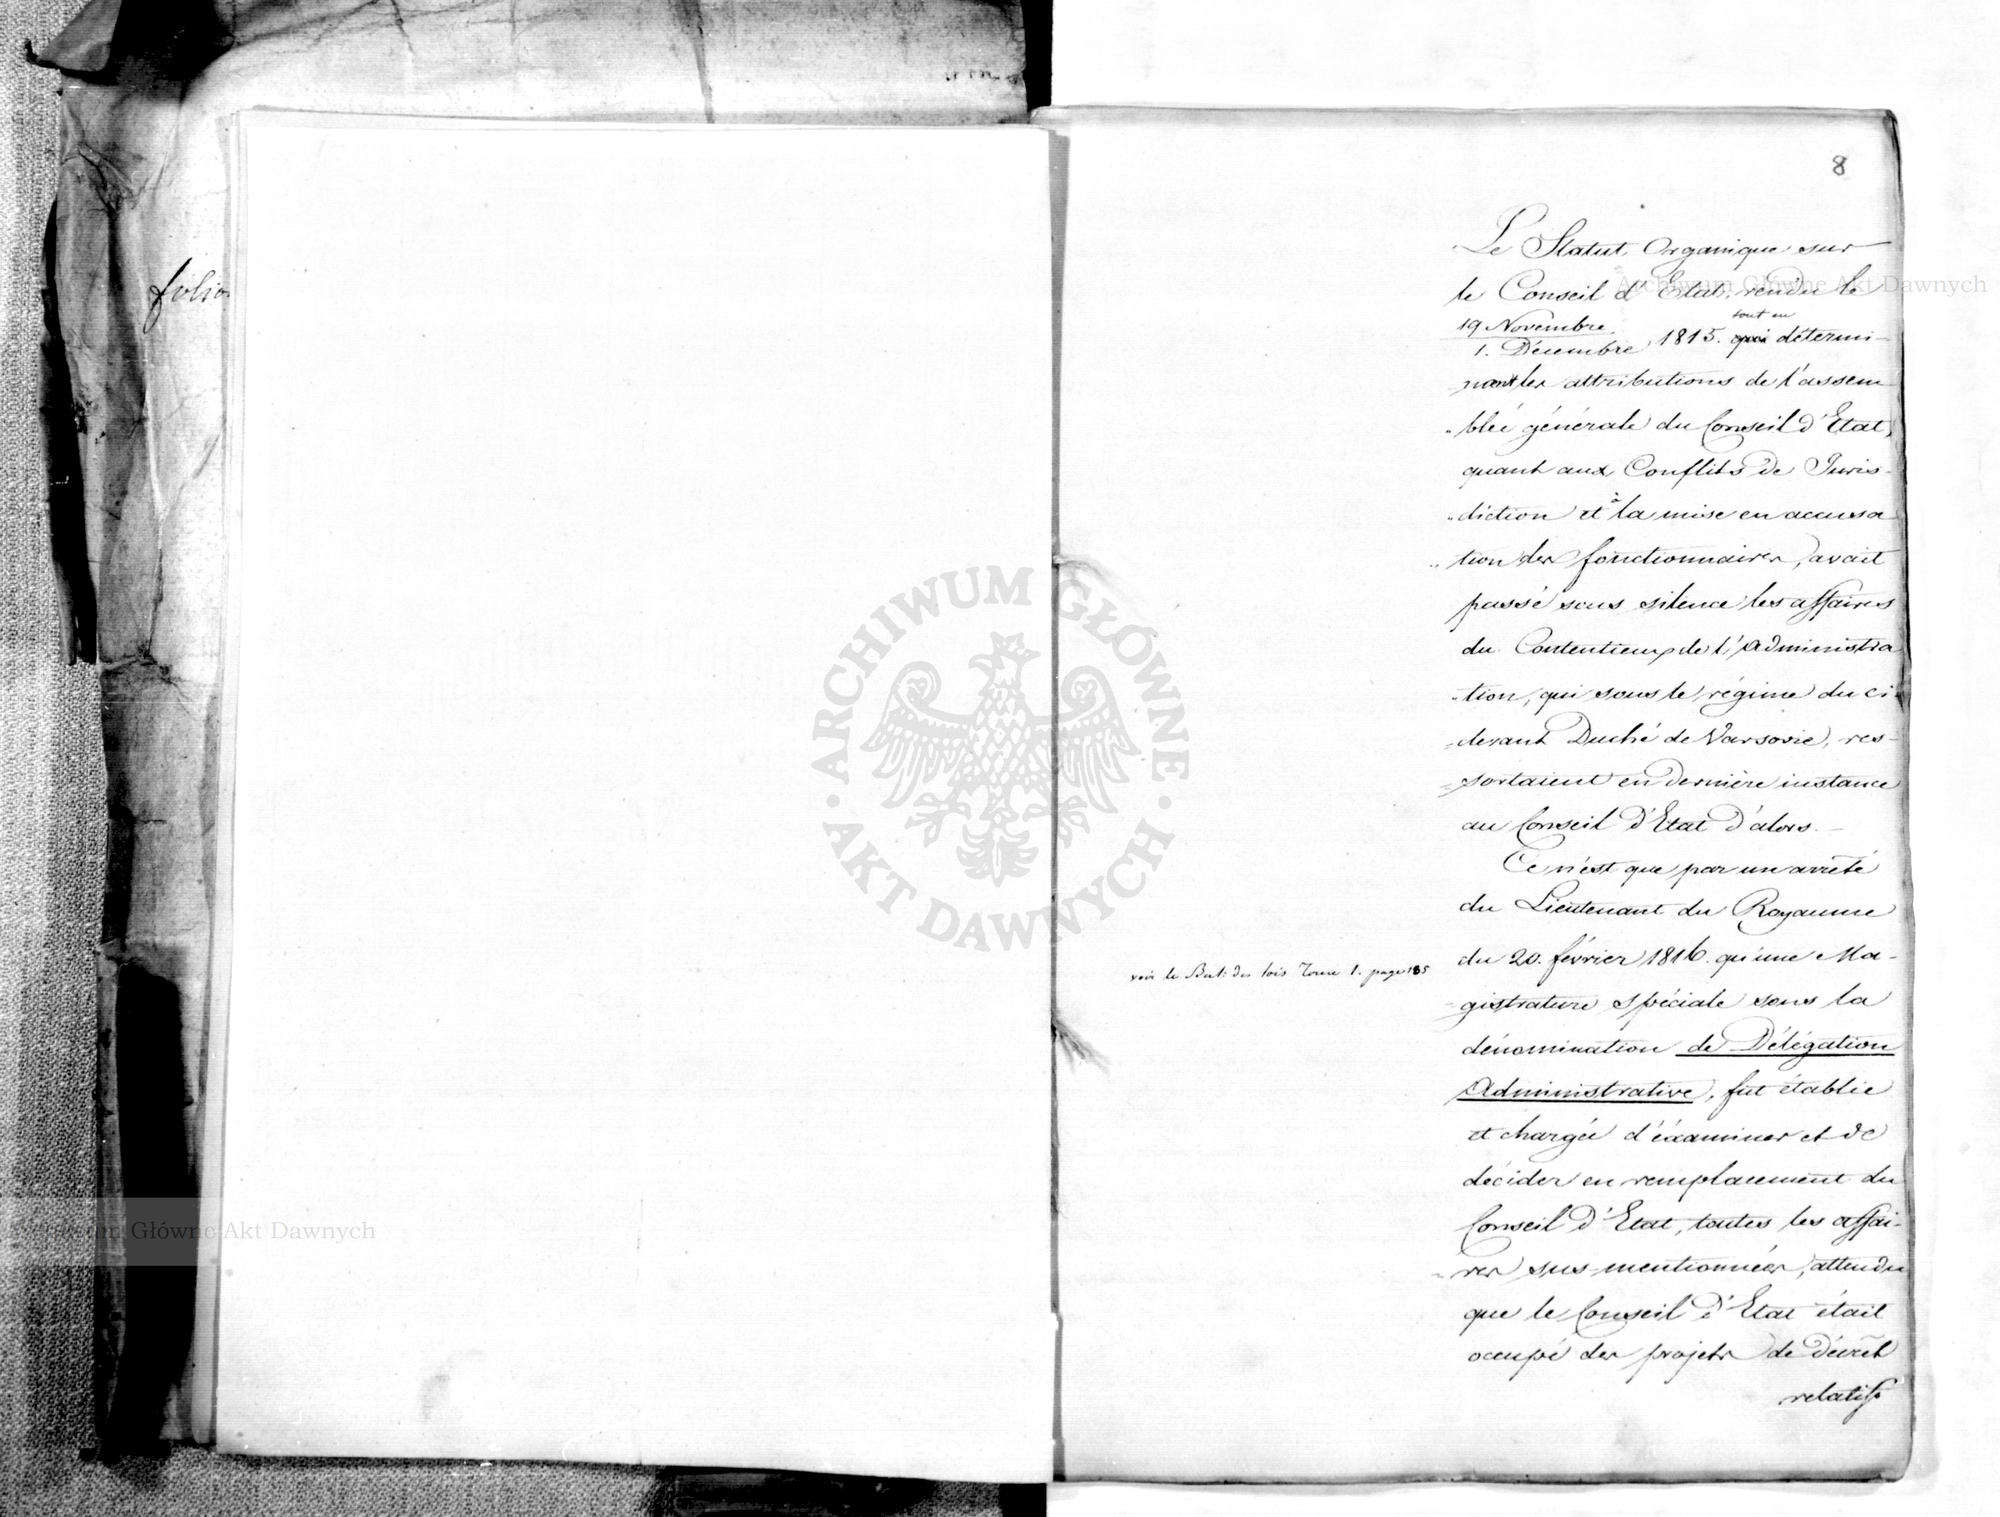 folio
8
Le Statut Organique sur
le Conseil d'Etat, rendu le
19 Novembre
1. Décembre 1815. qui tout en détermi-
nant les attributions de l'assem
"blée générale du Conseil d'Etat,
quant aux Conflits de Juris-
"diction et à la mise en accusa
"tion des fonctionnaires, avait
passé sous silence les affaires
du Contentieux de l'Administra
"tion, qui sous le régime du ci
=devant Duché de Varsovie, res-
=sortaient en dernière instance
au Conseil d'Etat d'alors.—
Ce n'est que par un arrêté
du Lieutenant du Royaume
du 20. février 1816. qu'une Ma-
voir le Bul: des lois Tome 1. page 185
=gistrature spéciale sous la
dénomination de Délégation
Administrative, fut établie
et chargée d'éxaminer et de
décider en remplacement du
Conseil d'Etat, toutes les affai-
=res sus-mentionnées, attendu
que le Conseil d'Etat était
occupé des projets de Décret
relatifs
ARCHIWUM GŁÓWNE
AKT DAWNYCH
Archiwum Główne Akt Dawnych
Główne Akt Dawnych